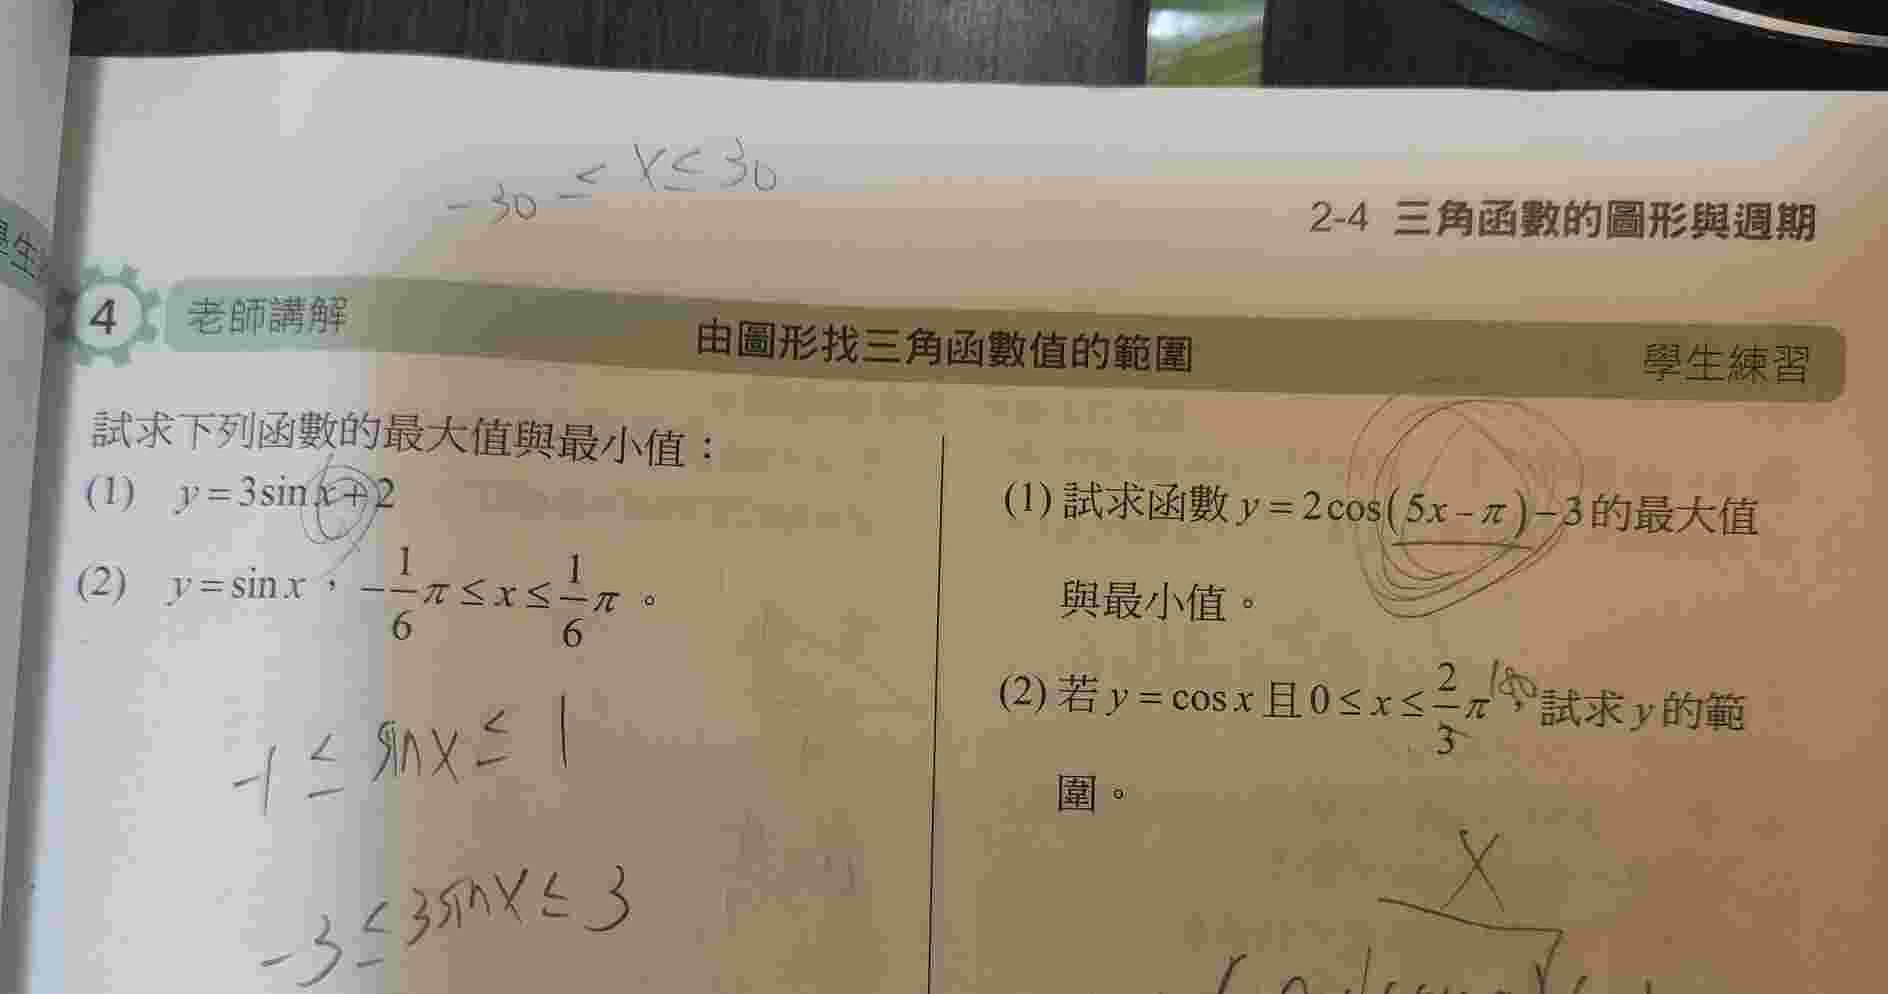 -30 ≤ x ≤ 30
2-4 三角函數的圖形與週期
4 老師講解 由圖形找三角函數值的範圍 學生練習
試求下列函數的最大值與最小值：
(1) y=3sin x+2
(2) y=sin x，-1/6π≤x≤1/6π。
-1 ≤ sin x ≤ 1
-3 ≤ 3sin x ≤ 3
(1) 試求函數 y=2cos(5x-π)-3 的最大值
與最小值。
(2) 若 y=cos x 且 0≤x≤2/3π，試求 y 的範
180
圍。
x